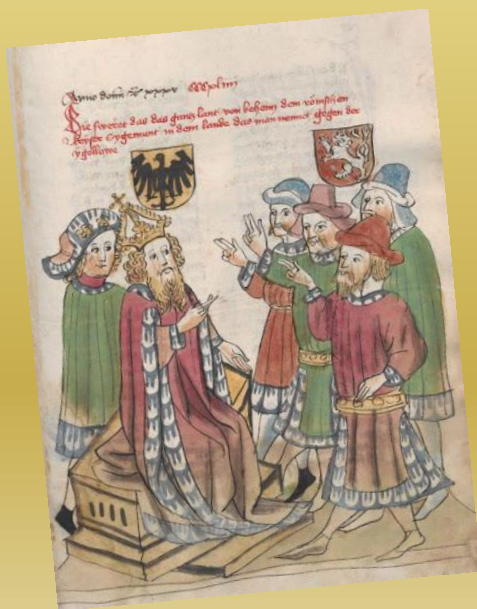 Anno dom xxxv
Hie sweret das das gantz lant von behem dem römschen
keyser Sygemont in dem lande das man nennet gegen der
yglowe